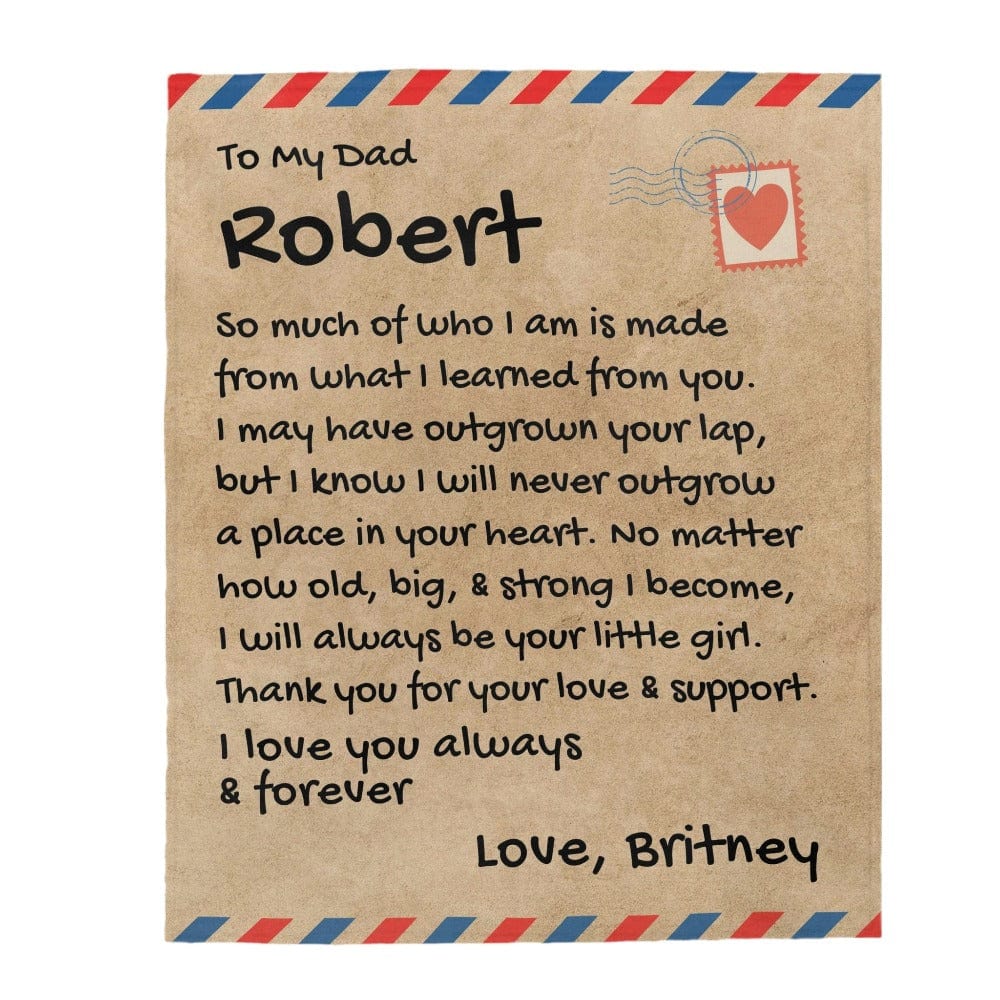 To My Dad
Robert
So much of who I am is made
from what I learned from you.
I may have outgrown your lap,
but I know I will never outgrow
a place in your heart. No matter
how old, big, & strong I become,
I will always be your little girl.
Thank you for your love & support.
I love you always
& forever
Love, Britney